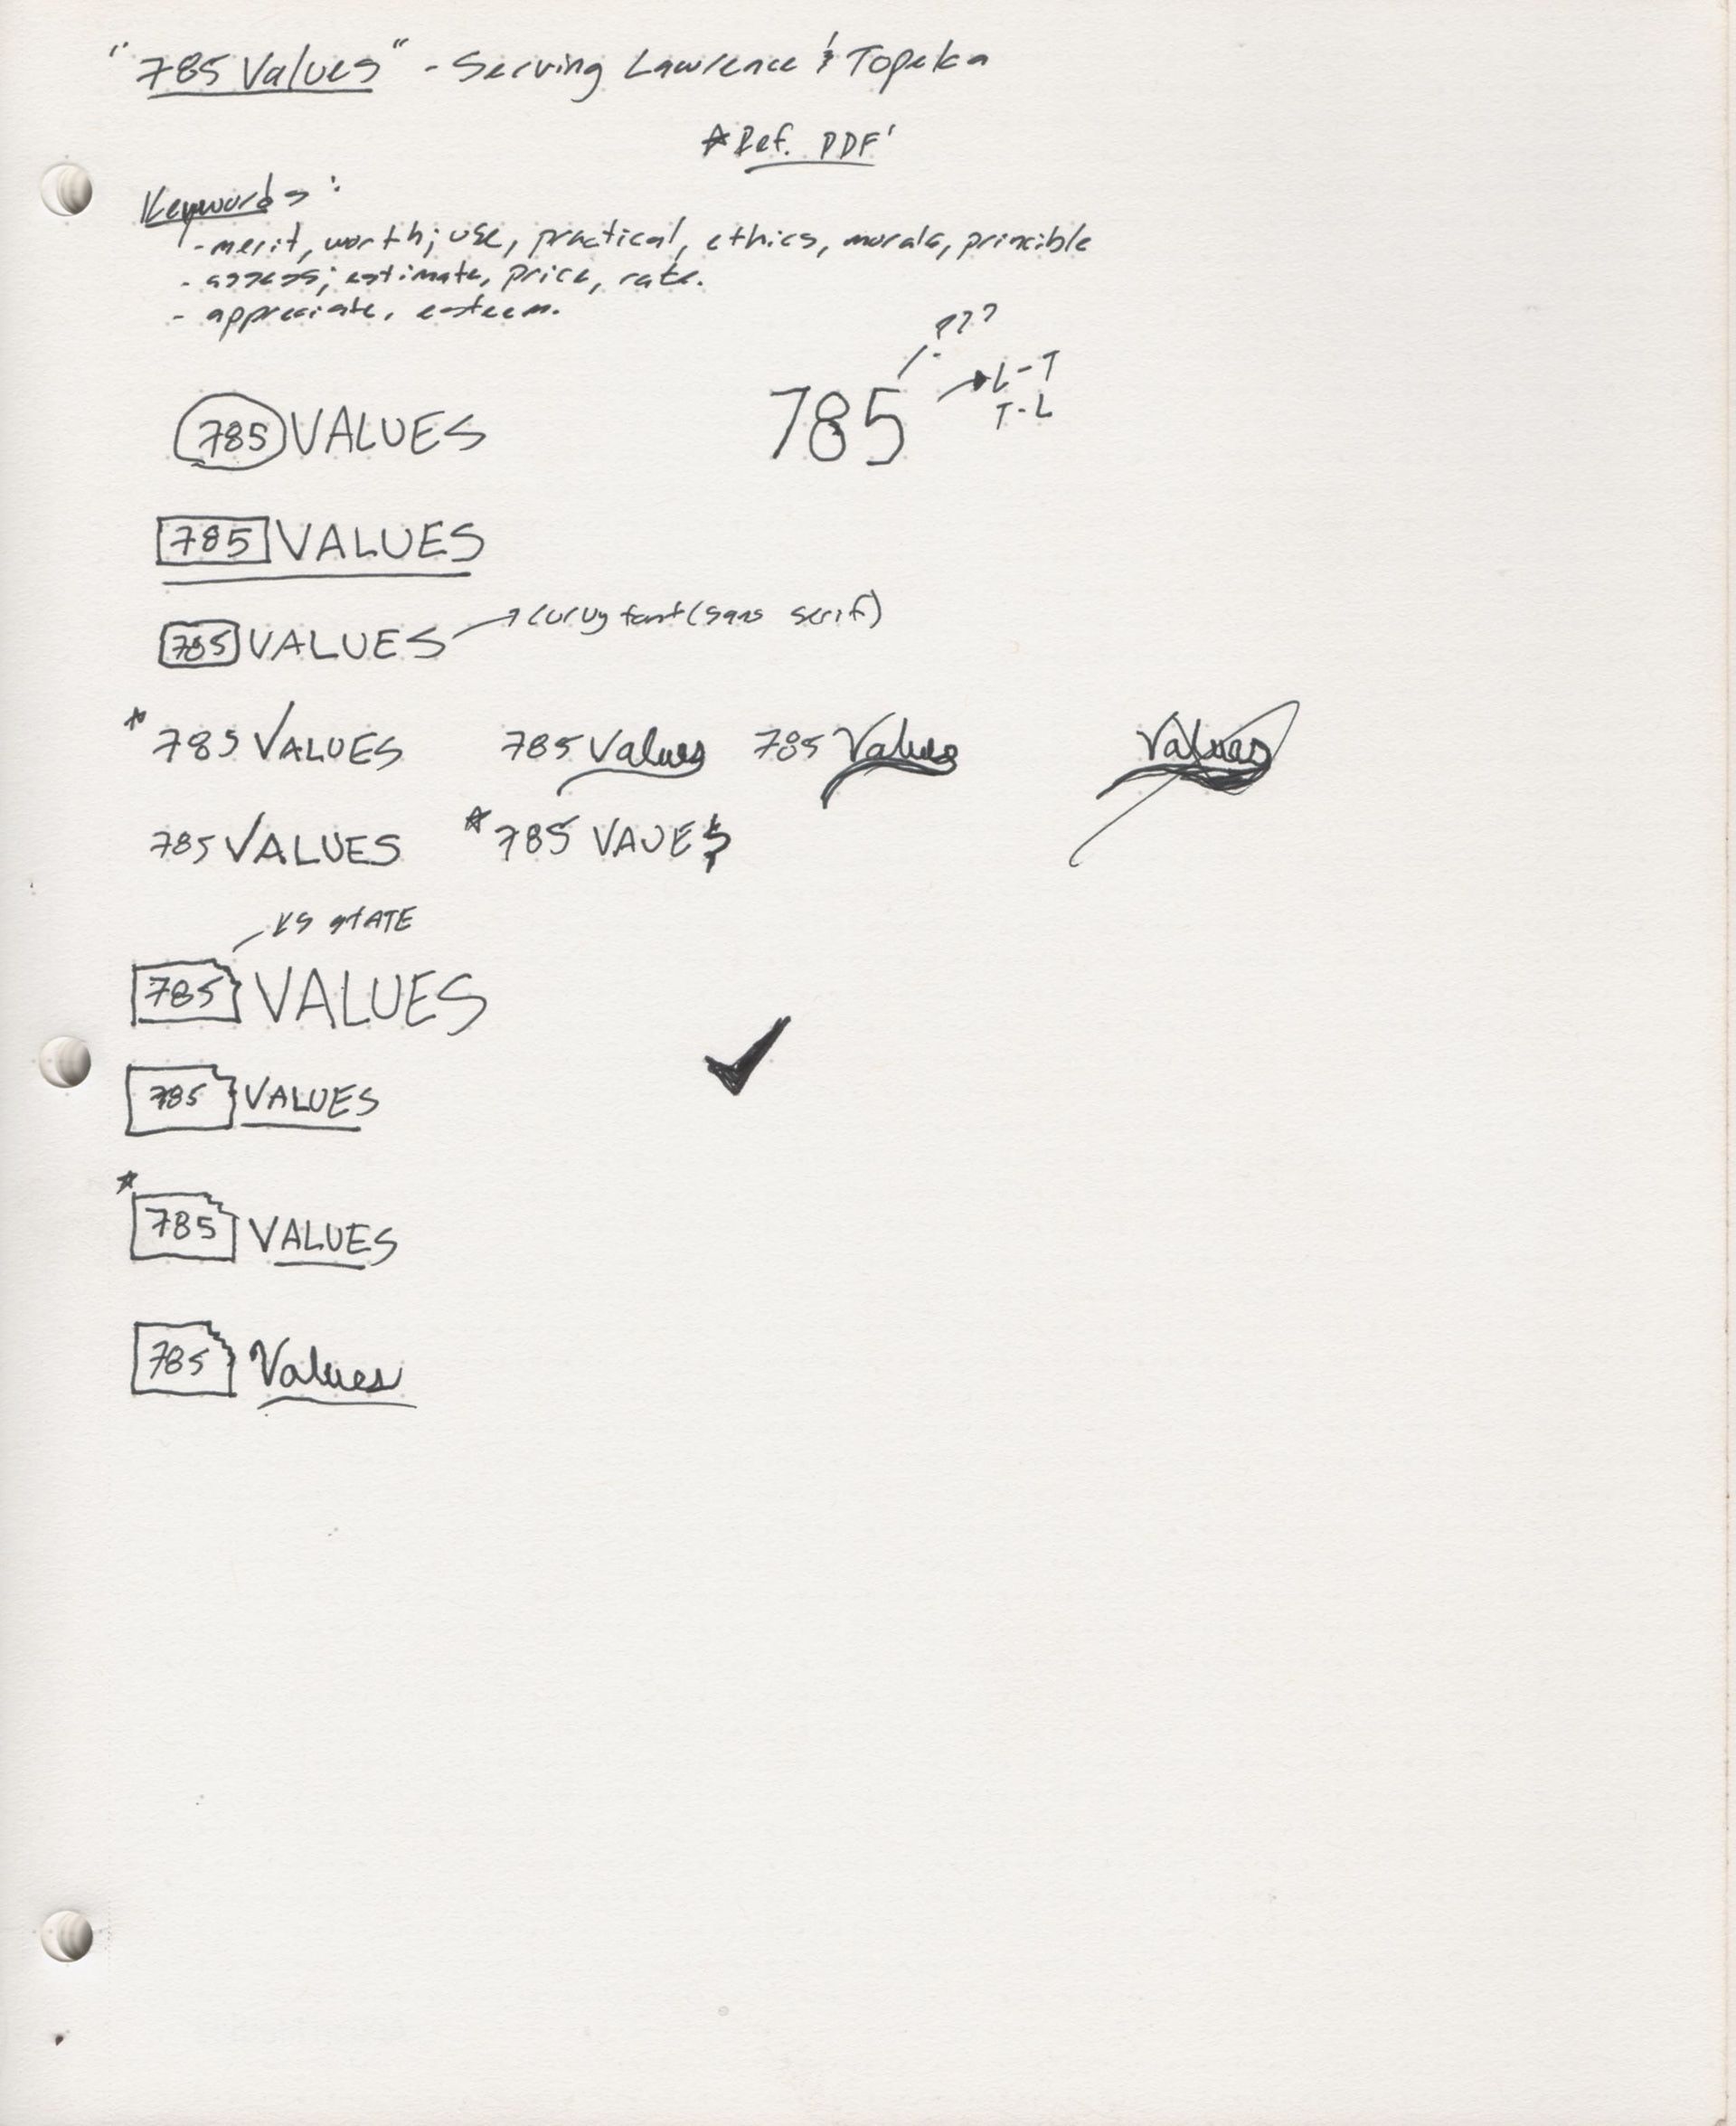 "785 Values" - Serving Lawrence & Topeka
*Ref. PDF'
Keywords:
- merit, worth; use, practical, ethics, morals, principle
- assess; estimate, price, rate.
- appreciate, esteem.
???
785 VALUES
785
L-T
T-L
785 VALUES
curvy font (sans serif)
785 VALUES
* 785 VALUES 785 Values 785 Values Values
785 VALUES * 785 VAUE$
KS STATE
785 VALUES
785 VALUES
*
785 VALUES
785 Values